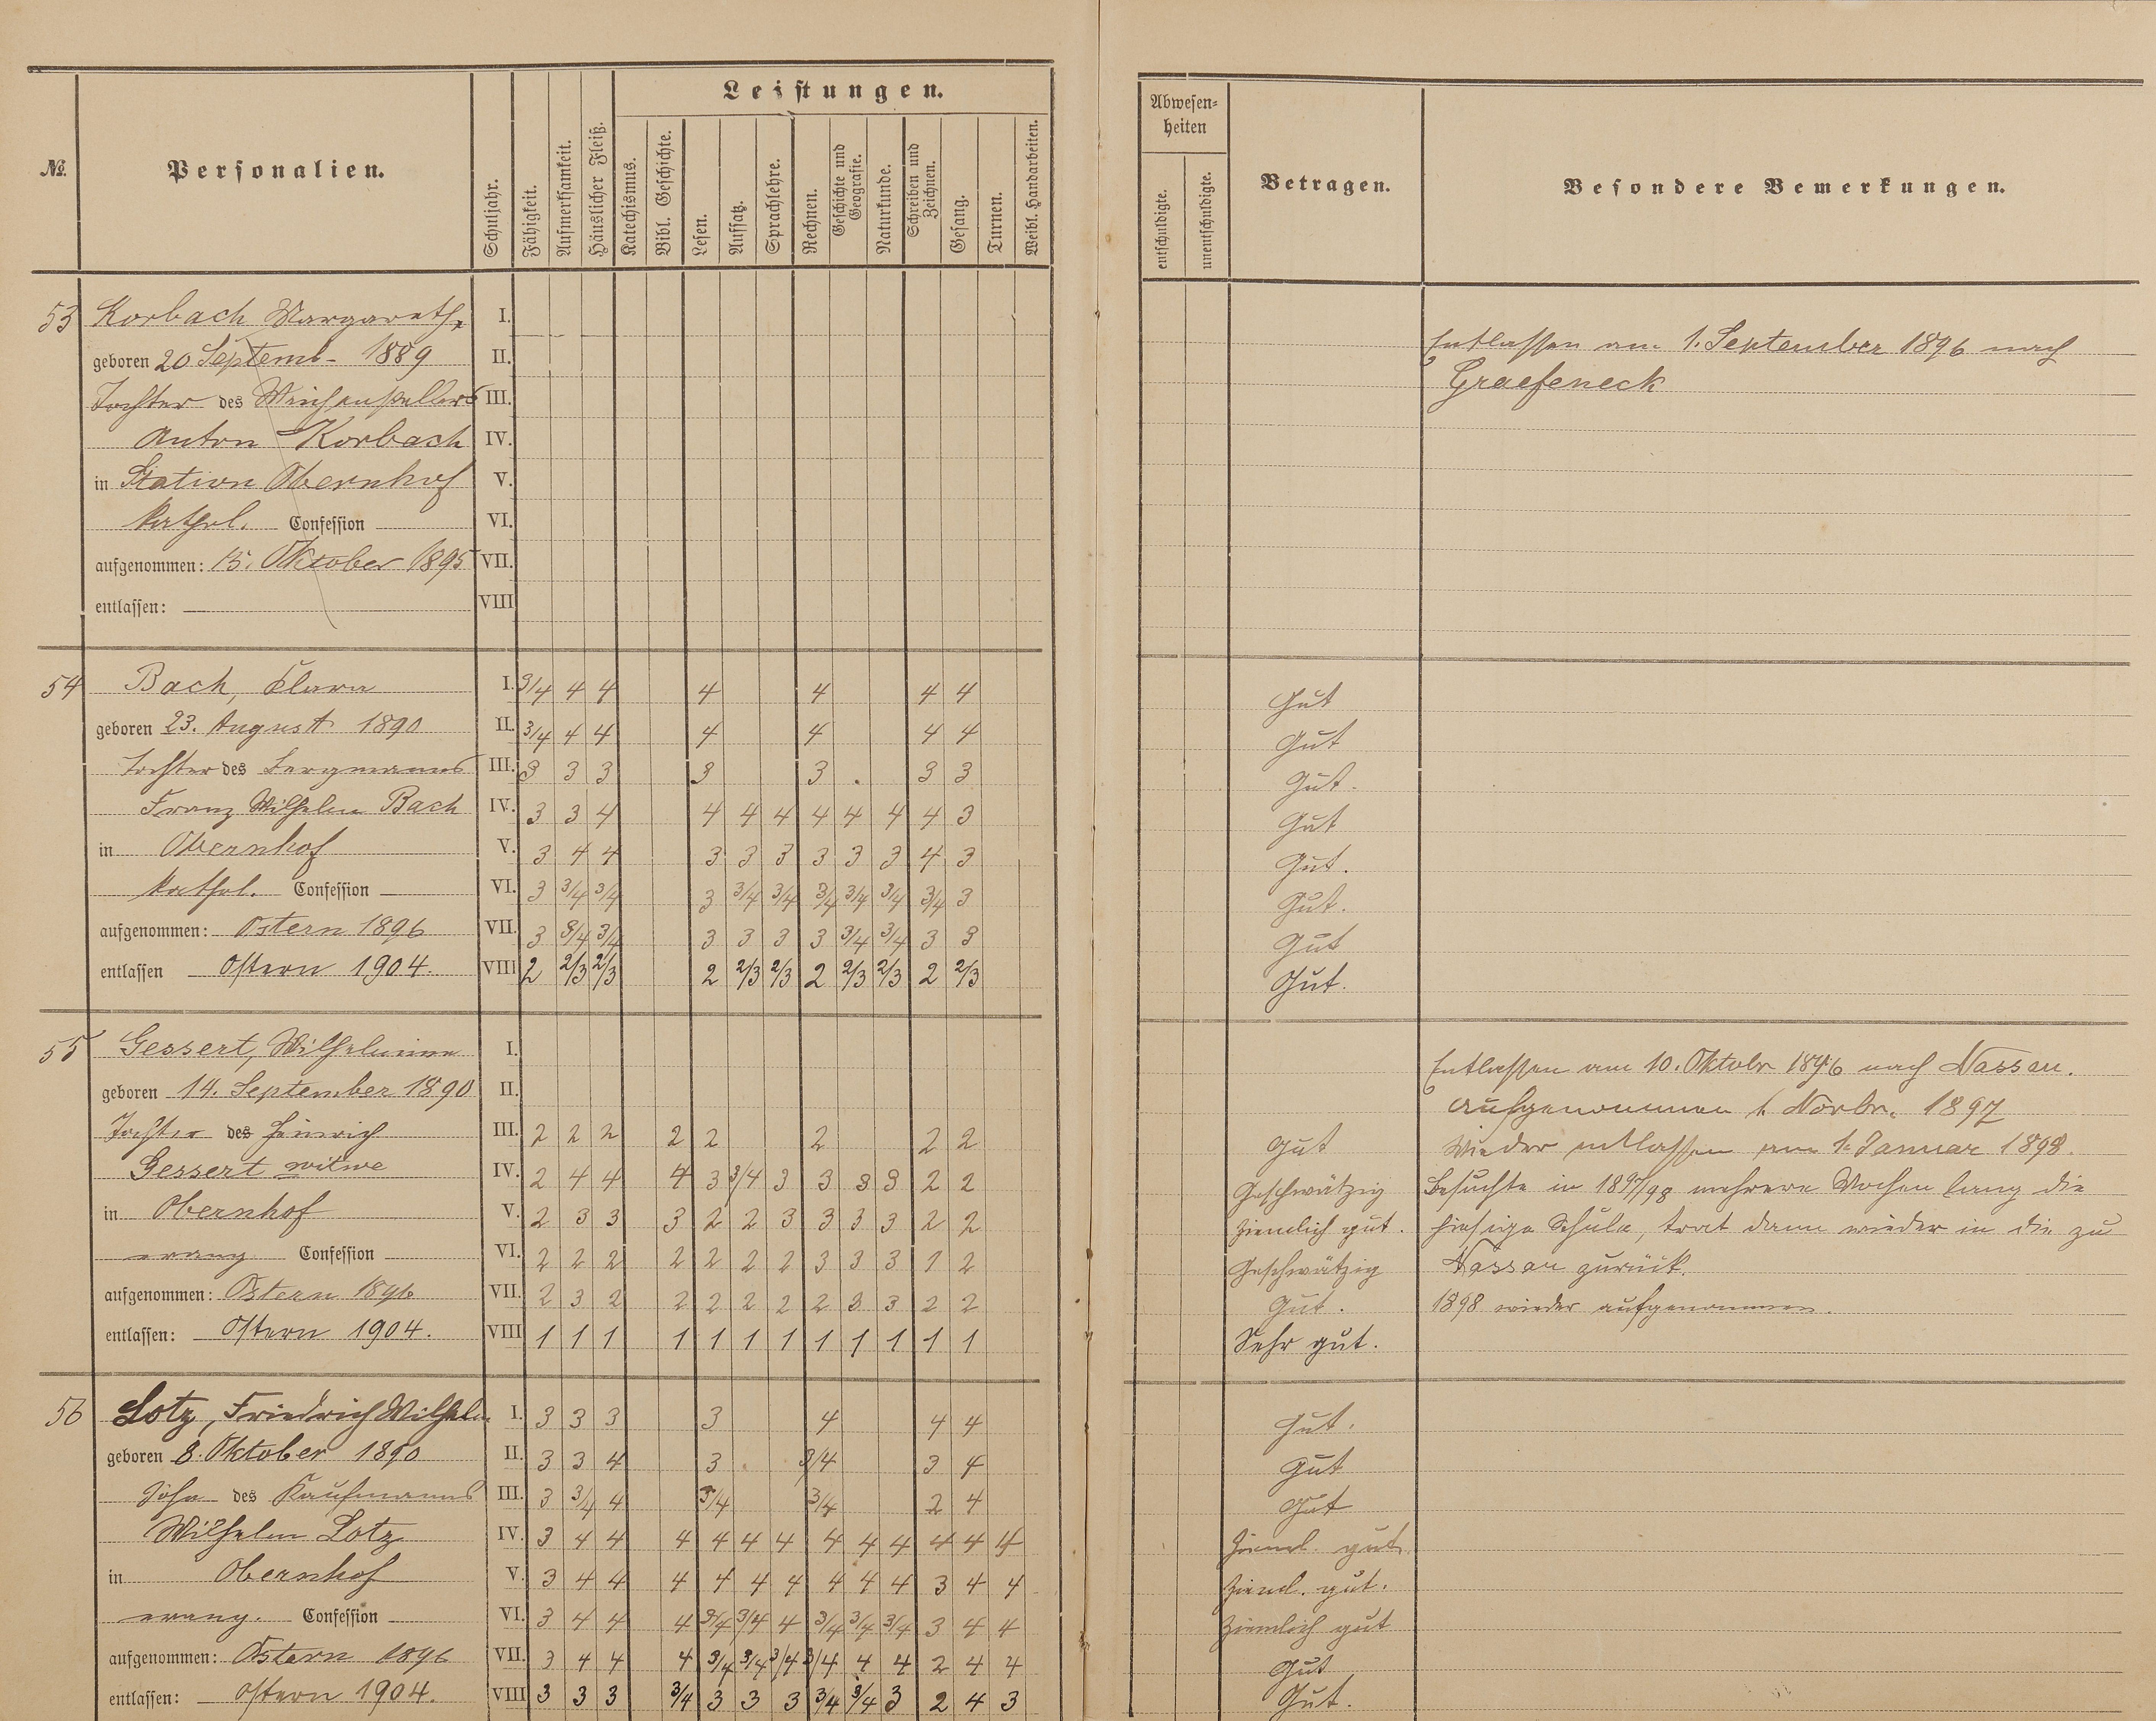 Leistungen.
№.
Personalien.
Schuljahr.
Fähigkeit.
Aufmerksamkeit.
Häuslicher Fleiß.
Katechismus.
Bibl. Geschichte.
Lesen.
Aufsatz.
Sprachlehre.
Rechnen.
Geschichte und Geografie.
Naturkunde.
Schreiben und Zeichnen.
Gesang.
Turnen.
Weibl. Handarbeiten.
Abwesenheiten
entschuldigte.
unentschuldigte.
Betragen.
Besondere Bemerkungen.
53 Korbach Margarethe I.
geboren 20 Septemb. 1889 II. Entlassen am 1. September 1896 nach
Tochter des Weichenstellers III. Graefeneck
Anton Korbach IV.
in Station Obernhof V.
kathol. Confession VI.
aufgenommen: 15. Oktober 1895 VII.
entlassen: VIII
54 Bach, Clara I. 3/4 4 4 4 4 4 4 Gut
geboren 23. August 1890 II. 3/4 4 4 4 4 4 4 Gut
Tochter des Bergmanns III. 3 3 3 3 3 3 3 Gut.
Franz Wilhelm Bach IV. 3 3 4 4 4 4 4 4 4 4 3 Gut
in Obernhof V. 3 4 4 3 3 3 3 3 3 4 3 Gut.
kathol. Confession VI. 3 3/4 3/4 3 3/4 3/4 3/4 3/4 3/4 3/4 3 Gut.
aufgenommen: Ostern 1896 VII. 3 3/4 3/4 3 3 3 3 3/4 3/4 3 3 Gut
entlassen Ostern 1904. VIII 2 2/3 2/3 2 2/3 2/3 2 2/3 2/3 2 2/3 Gut.
55 Gessert, Wilhelmine I. Entlassen am 10. Oktobr 1896 nach Nassau.
geboren 14. September 1890 II. Aufgenommen 1. Novbr. 1897
Tochter des Heinrich III. 2 2 2 2 2 2 2 2 Gut Wieder entlassen am 1. Januar 1898.
Gessert witwe IV. 2 4 4 4 3 3/4 3 3 3 3 2 2 Geschwätzig Besuchte in 1897/98 mehrere Wochen lang die
in Obernhof V. 2 3 3 3 2 2 3 3 3 3 2 2 Ziemlich gut. hiesige Schule, trat dann wieder in die zu
evang. Confession VI. 2 2 2 2 2 2 2 3 3 3 1 2 Geschwätzig Nassau zurück.
aufgenommen: Ostern 1896 VII. 2 3 2 2 2 2 2 2 3 3 2 2 Gut. 1898 wieder aufgenommen.
entlassen: Ostern 1904. VIII 1 1 1 1 1 1 1 1 1 1 1 1 Sehr gut.
56 Lotz, Friedrich Wilhelm I. 3 3 3 3 4 4 4 Gut.
geboren 8. Oktober 1890 II. 3 3 4 3 3/4 3 4 Gut
Sohn des Kaufmanns III. 3 3/4 4 3/4 3/4 2 4 Gut
Wilhelm Lotz IV. 3 4 4 4 4 4 4 4 4 4 4 4 4 Zieml. gut
in Obernhof V. 3 4 4 4 4 4 4 4 4 4 3 4 4 Zieml. gut.
evang. Confession VI. 3 4 4 4 3/4 3/4 4 3/4 3/4 3/4 3 4 4 Ziemlich gut
aufgenommen: Ostern 1896 VII. 3 4 4 4 3/4 3/4 3/4 3/4 4 4 2 4 4 Gut
entlassen: Ostern 1904. VIII 3 3 3 3/4 3 3 3 3/4 3/4 3 2 4 3 Gut.